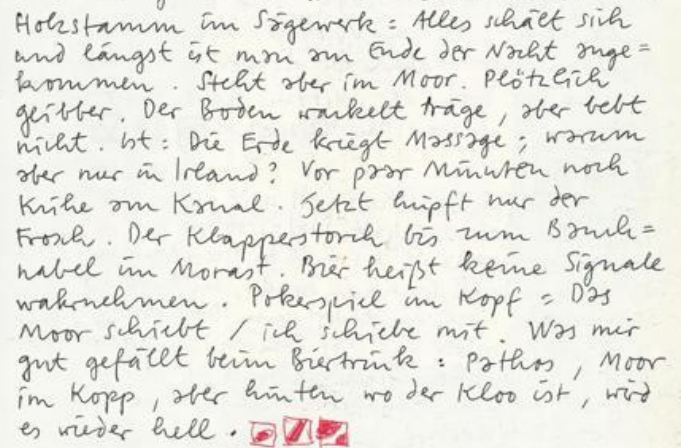 Holzstamm im Sägewerk : Alles schält sich
und längst ist man am Ende der Nacht ange=
kommen . Steht aber im Moor. Plötzlich
geibber. Der Boden wackelt träge , aber bebt
nicht. Ist : Die Erde kriegt Massage ; warum
aber nur in Irland ? Vor paar Minuten noch
Kühe am Kanal . Jetzt hüpft nur der
Frosch . Der Klapperstorch bis zum Bauch=
nabel im Morast . Bier heißt keine Signale
wahrnehmen . Pokerspiel im Kopf = Das
Moor schiebt / ich schiebe mit . Was mir
gut gefällt beim Biertrink : Pathos , Moor
im Kopp , aber hinten wo der Kloo ist , wird
es wieder hell .